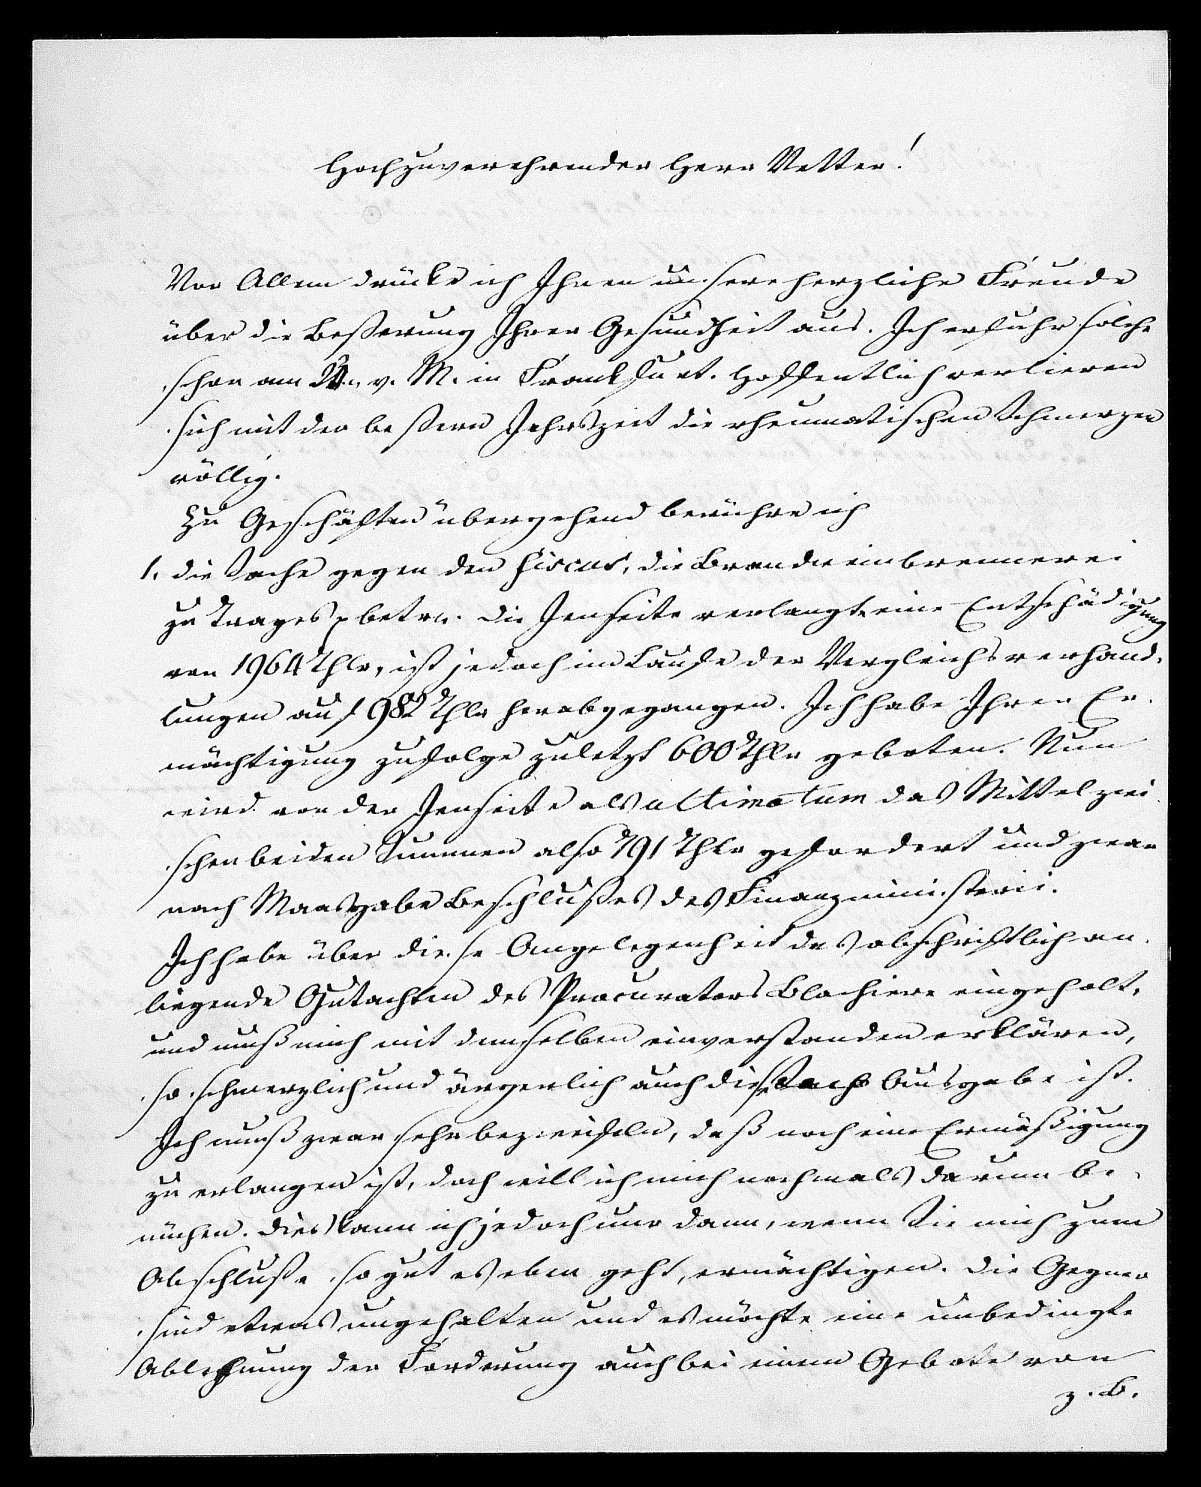 Hochzuverehrender Herr Vetter!
Vor Allem drücke ich Ihnen unsere herzliche Freude
über die Beßerung Ihrer Gesundheit aus. Ich erfuhr solche
schon am v. M. in Frankfurt. Hoffentlich verlieren
sich mit der beßern Jahrszeit die rheumatischen Schmerzen
völlig.
Zu Geschäften übergehend berühre ich
1. die Sache gegen den Fiscus, die Brandweinbrennerei
zu Trages betr. Die Jenseite verlangte eine Entschädigung
von 1964 Thlr, ist jedoch im Laufe der Vergleichsverhand-
lungen auf 982 Thlr herabgegangen. Ich habe Ihrer Er-
mächtigung zufolge zuletzt 600 Thlr geboten. Nun
wird von der Jenseite als ultimatum das Mittel zwi-
schen beiden Summen also 791 Thlr gefordert und zwar
nach Maasgabe Beschlußes des Finanzministerii.
Ich habe über diese Angelegenheit das abschriftlich an-
liegende Gutachten des Procurators Blachiere eingeholt,
und muß mich mit demselben einverstanden erklären,
so schmerzlich und ärgerlich auch diese Ausgabe ist.
Ich muß zwar sehr bezweifeln, daß noch eine Ermäßigung
zu erlangen ist, doch will ich mich nochmals darum be-
mühen. Dies kann ich jedoch nur dann, wenn Sie mich zum
Abschluße so gut es eben geht, ermächtigen. Die Gegner
sind etwas ungehalten und es möchte eine unbedingte
Ablehnung der Forderung auch bei einem Gebote von
z. B.